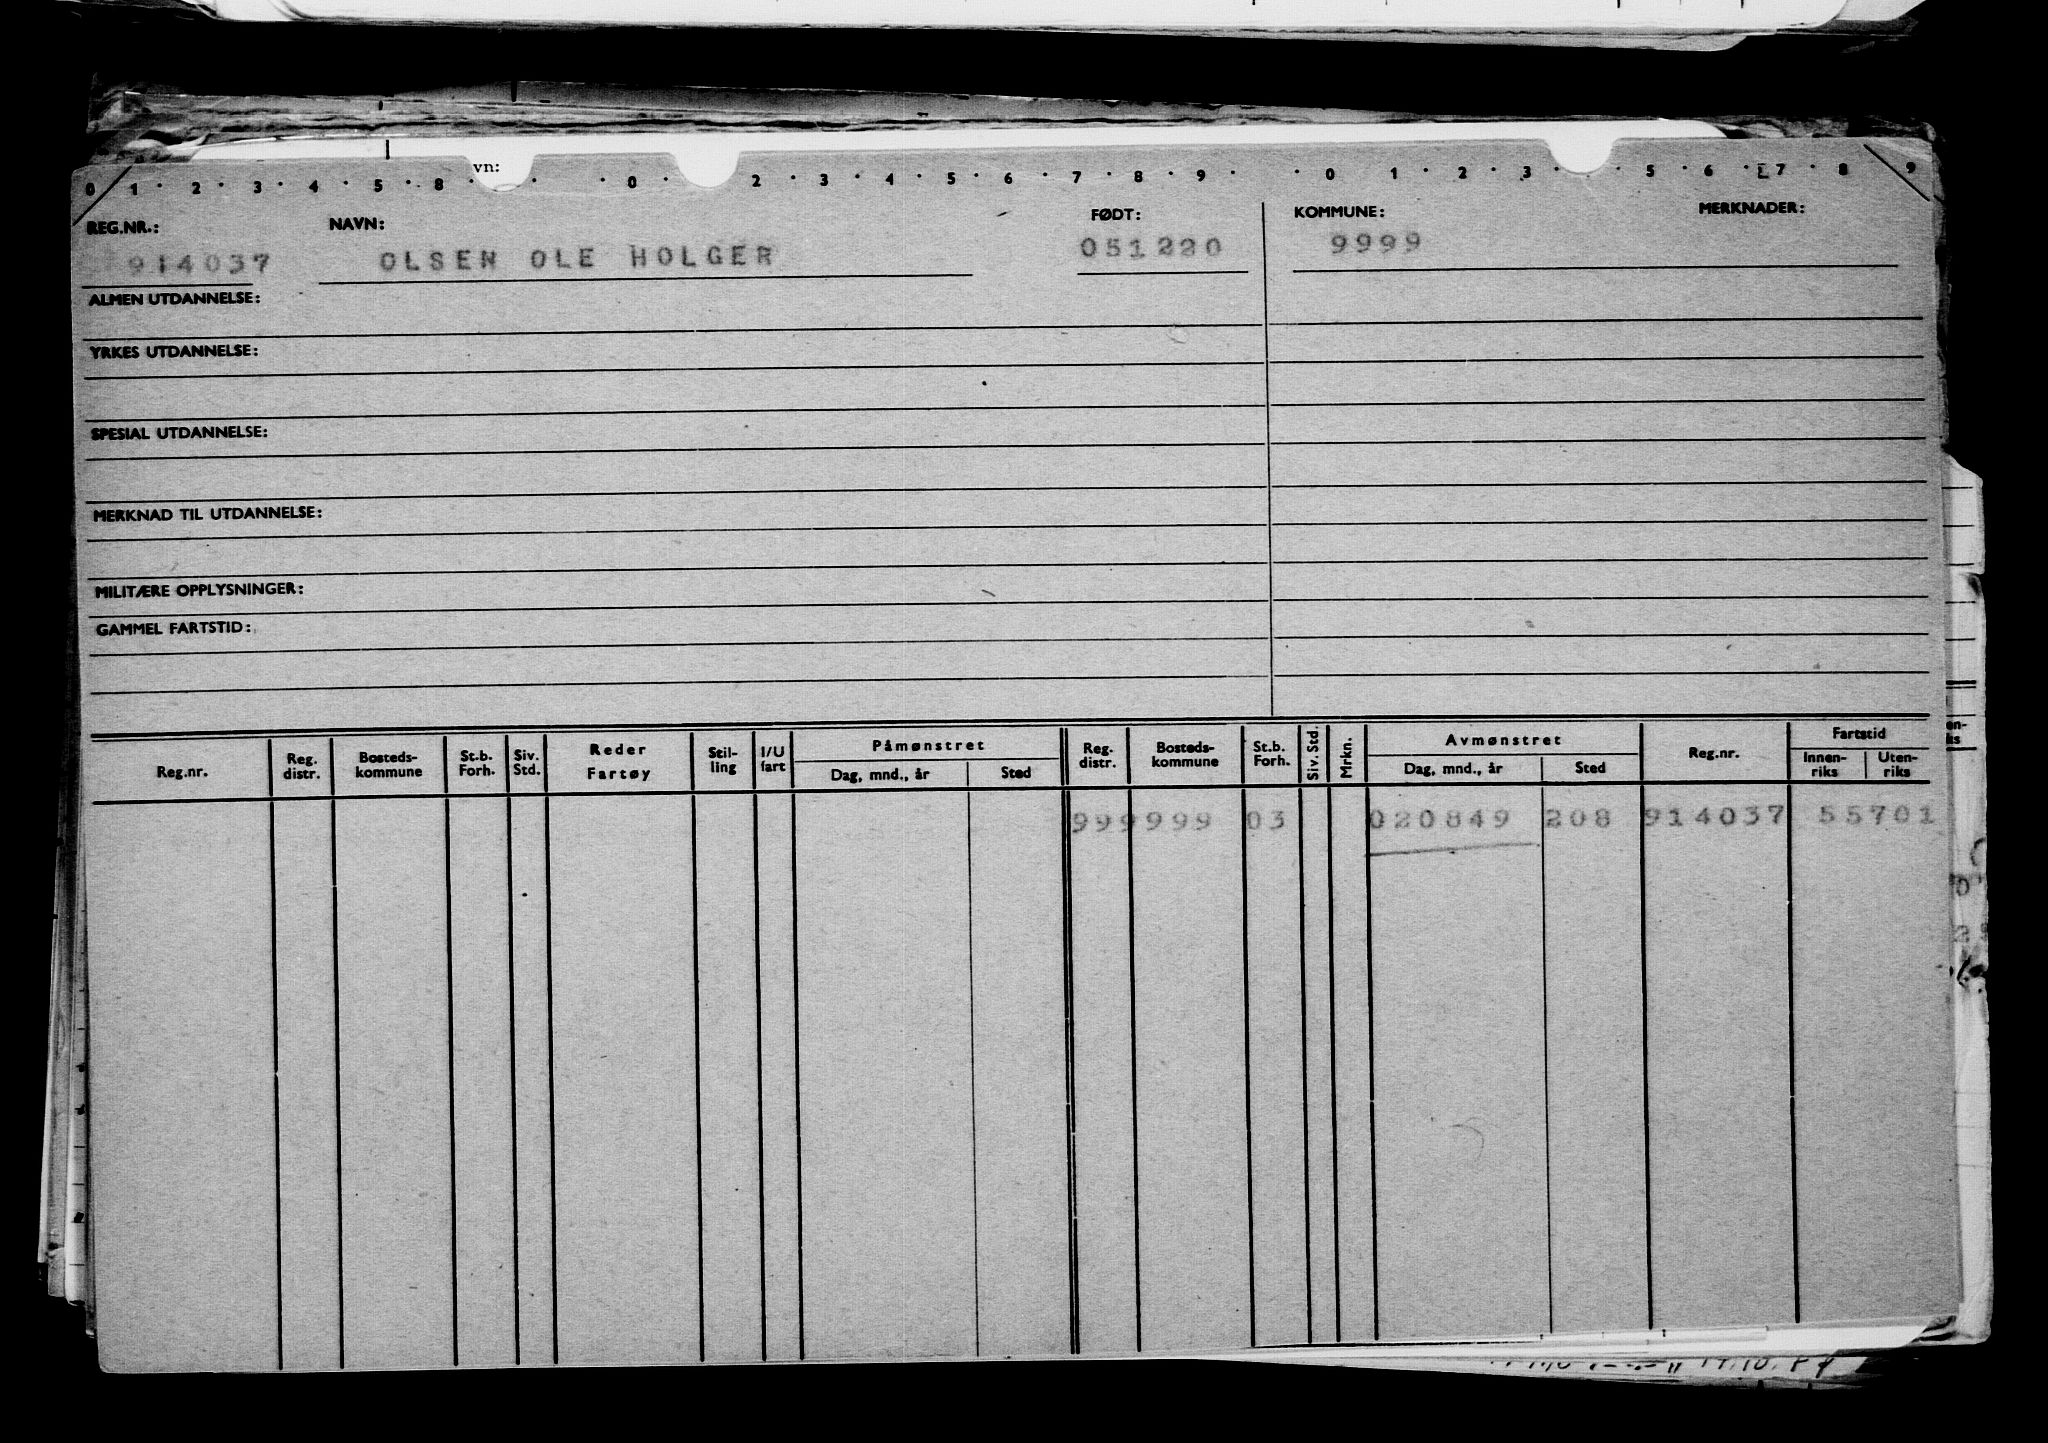 vn:
0 1 · 2 · 3 · 4 · 5 · 8 · · 0 · 2 · 3 · 4 · 5 · 6 · 7 · 8 · 9 · · 0 1 · 2 · 3 · 5 · 6 · 7 · 8 · 9
REG.NR.: NAVN: FØDT: KOMMUNE: MERKNADER:
914037 OLSEN OLE HOLGER 051220 9999
ALMEN UTDANNELSE:
YRKES UTDANNELSE:
SPESIAL UTDANNELSE:
MERKNAD TIL UTDANNELSE:
MILITÆRE OPPLYSNINGER:
GAMMEL FARTSTID:
Reg.nr. Reg. distr. Bosteds-kommune St.b. Forh. Siv. Std. Reder Fartøy Stil-ling I/U fart Påmønstret Reg. distr. Bosteds-kommune St.b. Forh. Siv. Std. Mrkn. Avmønstret Reg.nr. Fartstid
Dag, mnd., år Sted Dag, mnd., år Sted Innen-riks Uten-riks
999999 03 020849 208 914037 55701